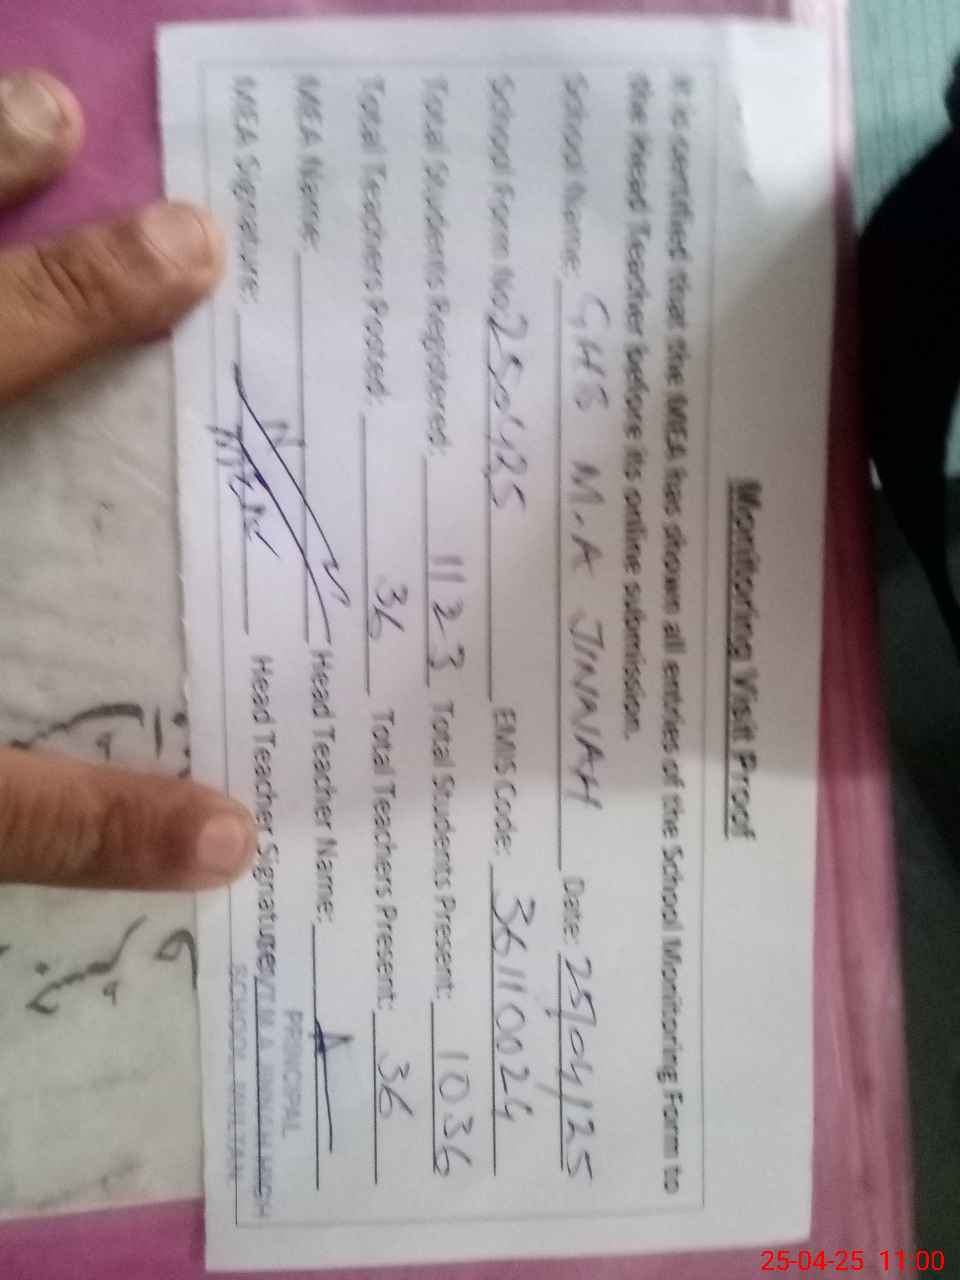 Monitoring Visit Proof
It is certified that the MEA has shown all entries of the School Monitoring Form to
the Head Teacher before its online submission.
School Name: GHS M.A JINNAH Date: 25/04/25
School Form No: 250425 EMIS Code: 36110024
Total Students Registered: 1123 Total Students Present: 1036
Total Teachers Posted: 36 Total Teachers Present: 36
MEA Name: Head Teacher Name:
MEA Signature: Head Teacher Signature:
PRINCIPAL
M.A. JINNAH HIGH
SCHOOL MULTAN
25-04-25 11:00